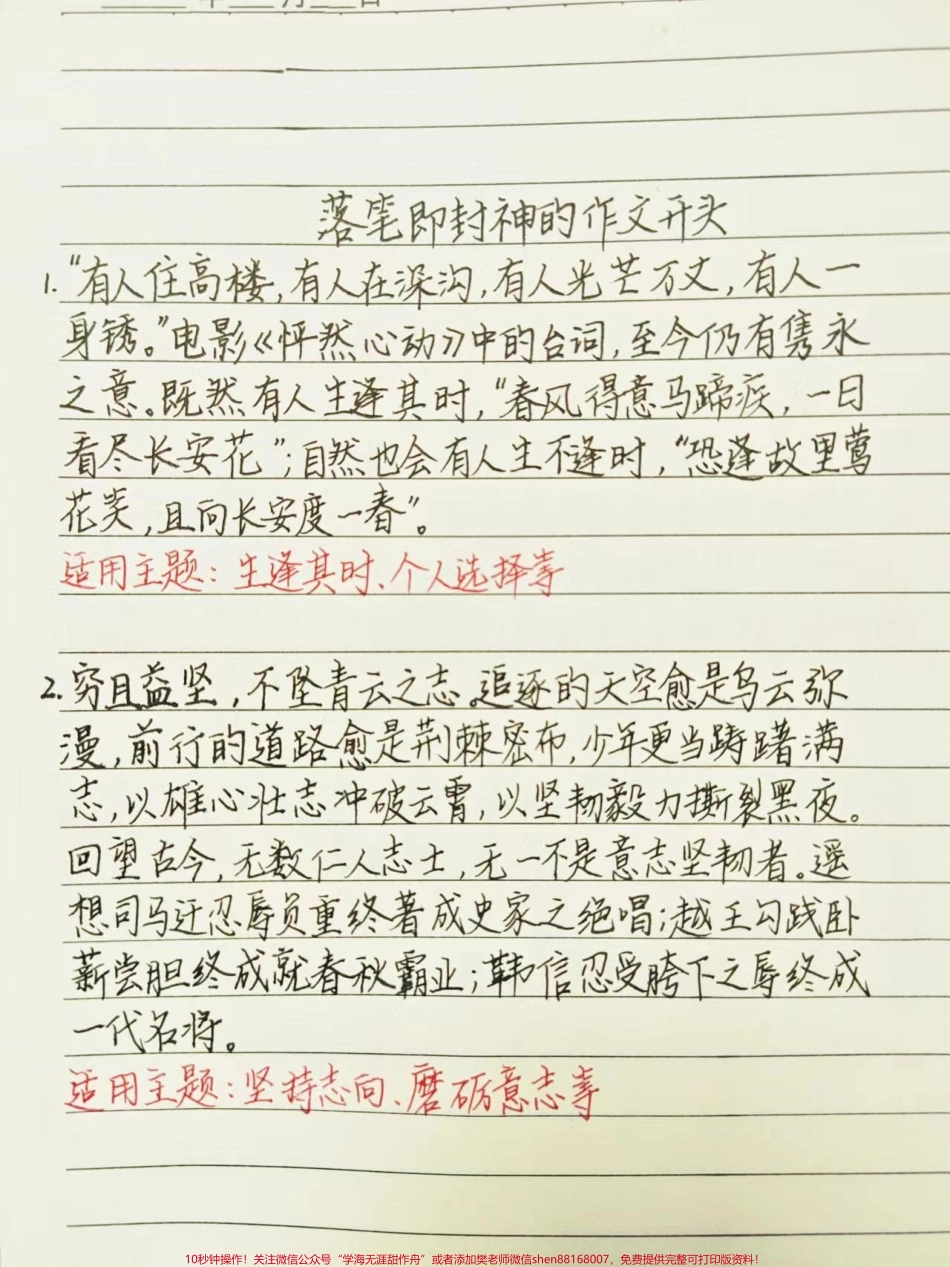 年 月 日
落笔即封神的作文开头
1. “有人住高楼,有人在深沟,有人光芒万丈,有人一
身锈。”电影《怦然心动》中的台词,至今仍有隽永
之意。既然有人生逢其时,“春风得意马蹄疾,一日
看尽长安花”;自然也会有人生不逢时,“恐逢故里莺
花笑,且向长安度一春”。
适用主题:生逢其时、个人选择等
2. 穷且益坚,不坠青云之志。追逐的天空愈是乌云弥
漫,前行的道路愈是荆棘密布,少年更当踌躇满
志,以雄心壮志冲破云霄,以坚韧毅力撕裂黑夜。
回望古今,无数仁人志士,无一不是意志坚韧者。遥
想司马迁忍辱负重终著成史家之绝唱;越王勾践卧
薪尝胆终成就春秋霸业;韩信忍受胯下之辱终成
一代名将。
适用主题:坚持志向、磨砺意志等
10秒钟操作!关注微信公众号“学海无涯甜作舟”或者添加樊老师微信shen88168007,免费提供完整可打印版资料!